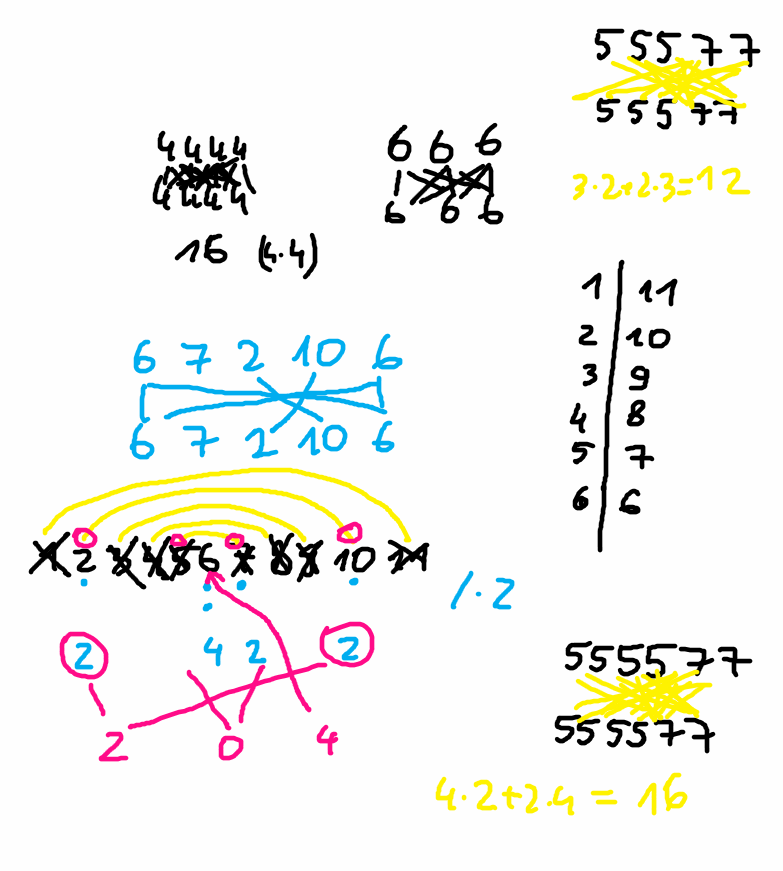 5 5 5 7 7
5 5 5 7 7
3·2+2·3=12
4 4 4 4
4 4 4 4
16 (4·4)
6 6 6
6 6 6
1 | 11
2 | 10
3 | 9
4 | 8
5 | 7
6 | 6
6 7 2 10 6
6 7 2 10 6
1 2 3 4 5 6 7 8 9 10 11
/·2
2 4 2 2
2 0 4
5 5 5 5 7 7
5 5 5 5 7 7
4·2+2·4 = 16